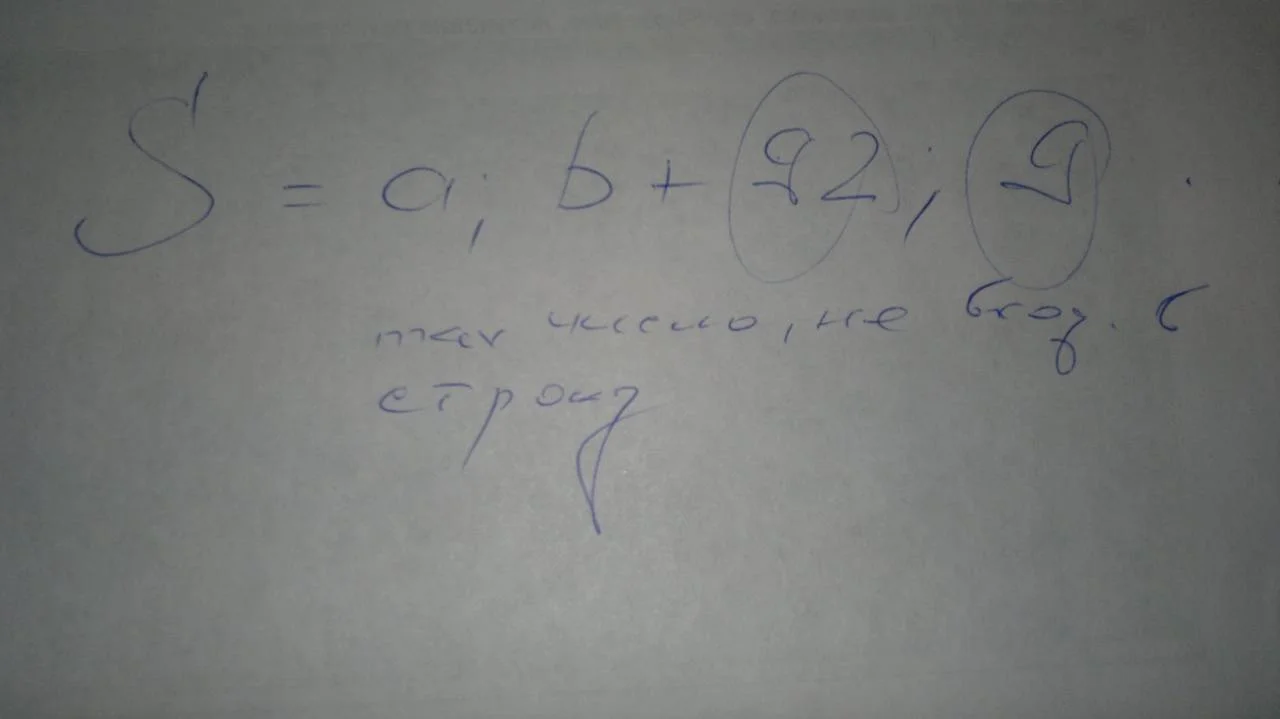 S = a; b + 92; 9.
max число, не вход. в
строку